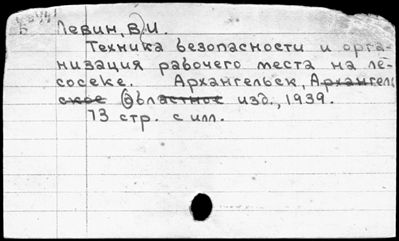 Левин, В.И.
Техника безопасности и орга-
низация рабочего места на ле-
сосеке. Архангельск, Архангель
ское Областное изд., 1939.
73 стр. с илл.